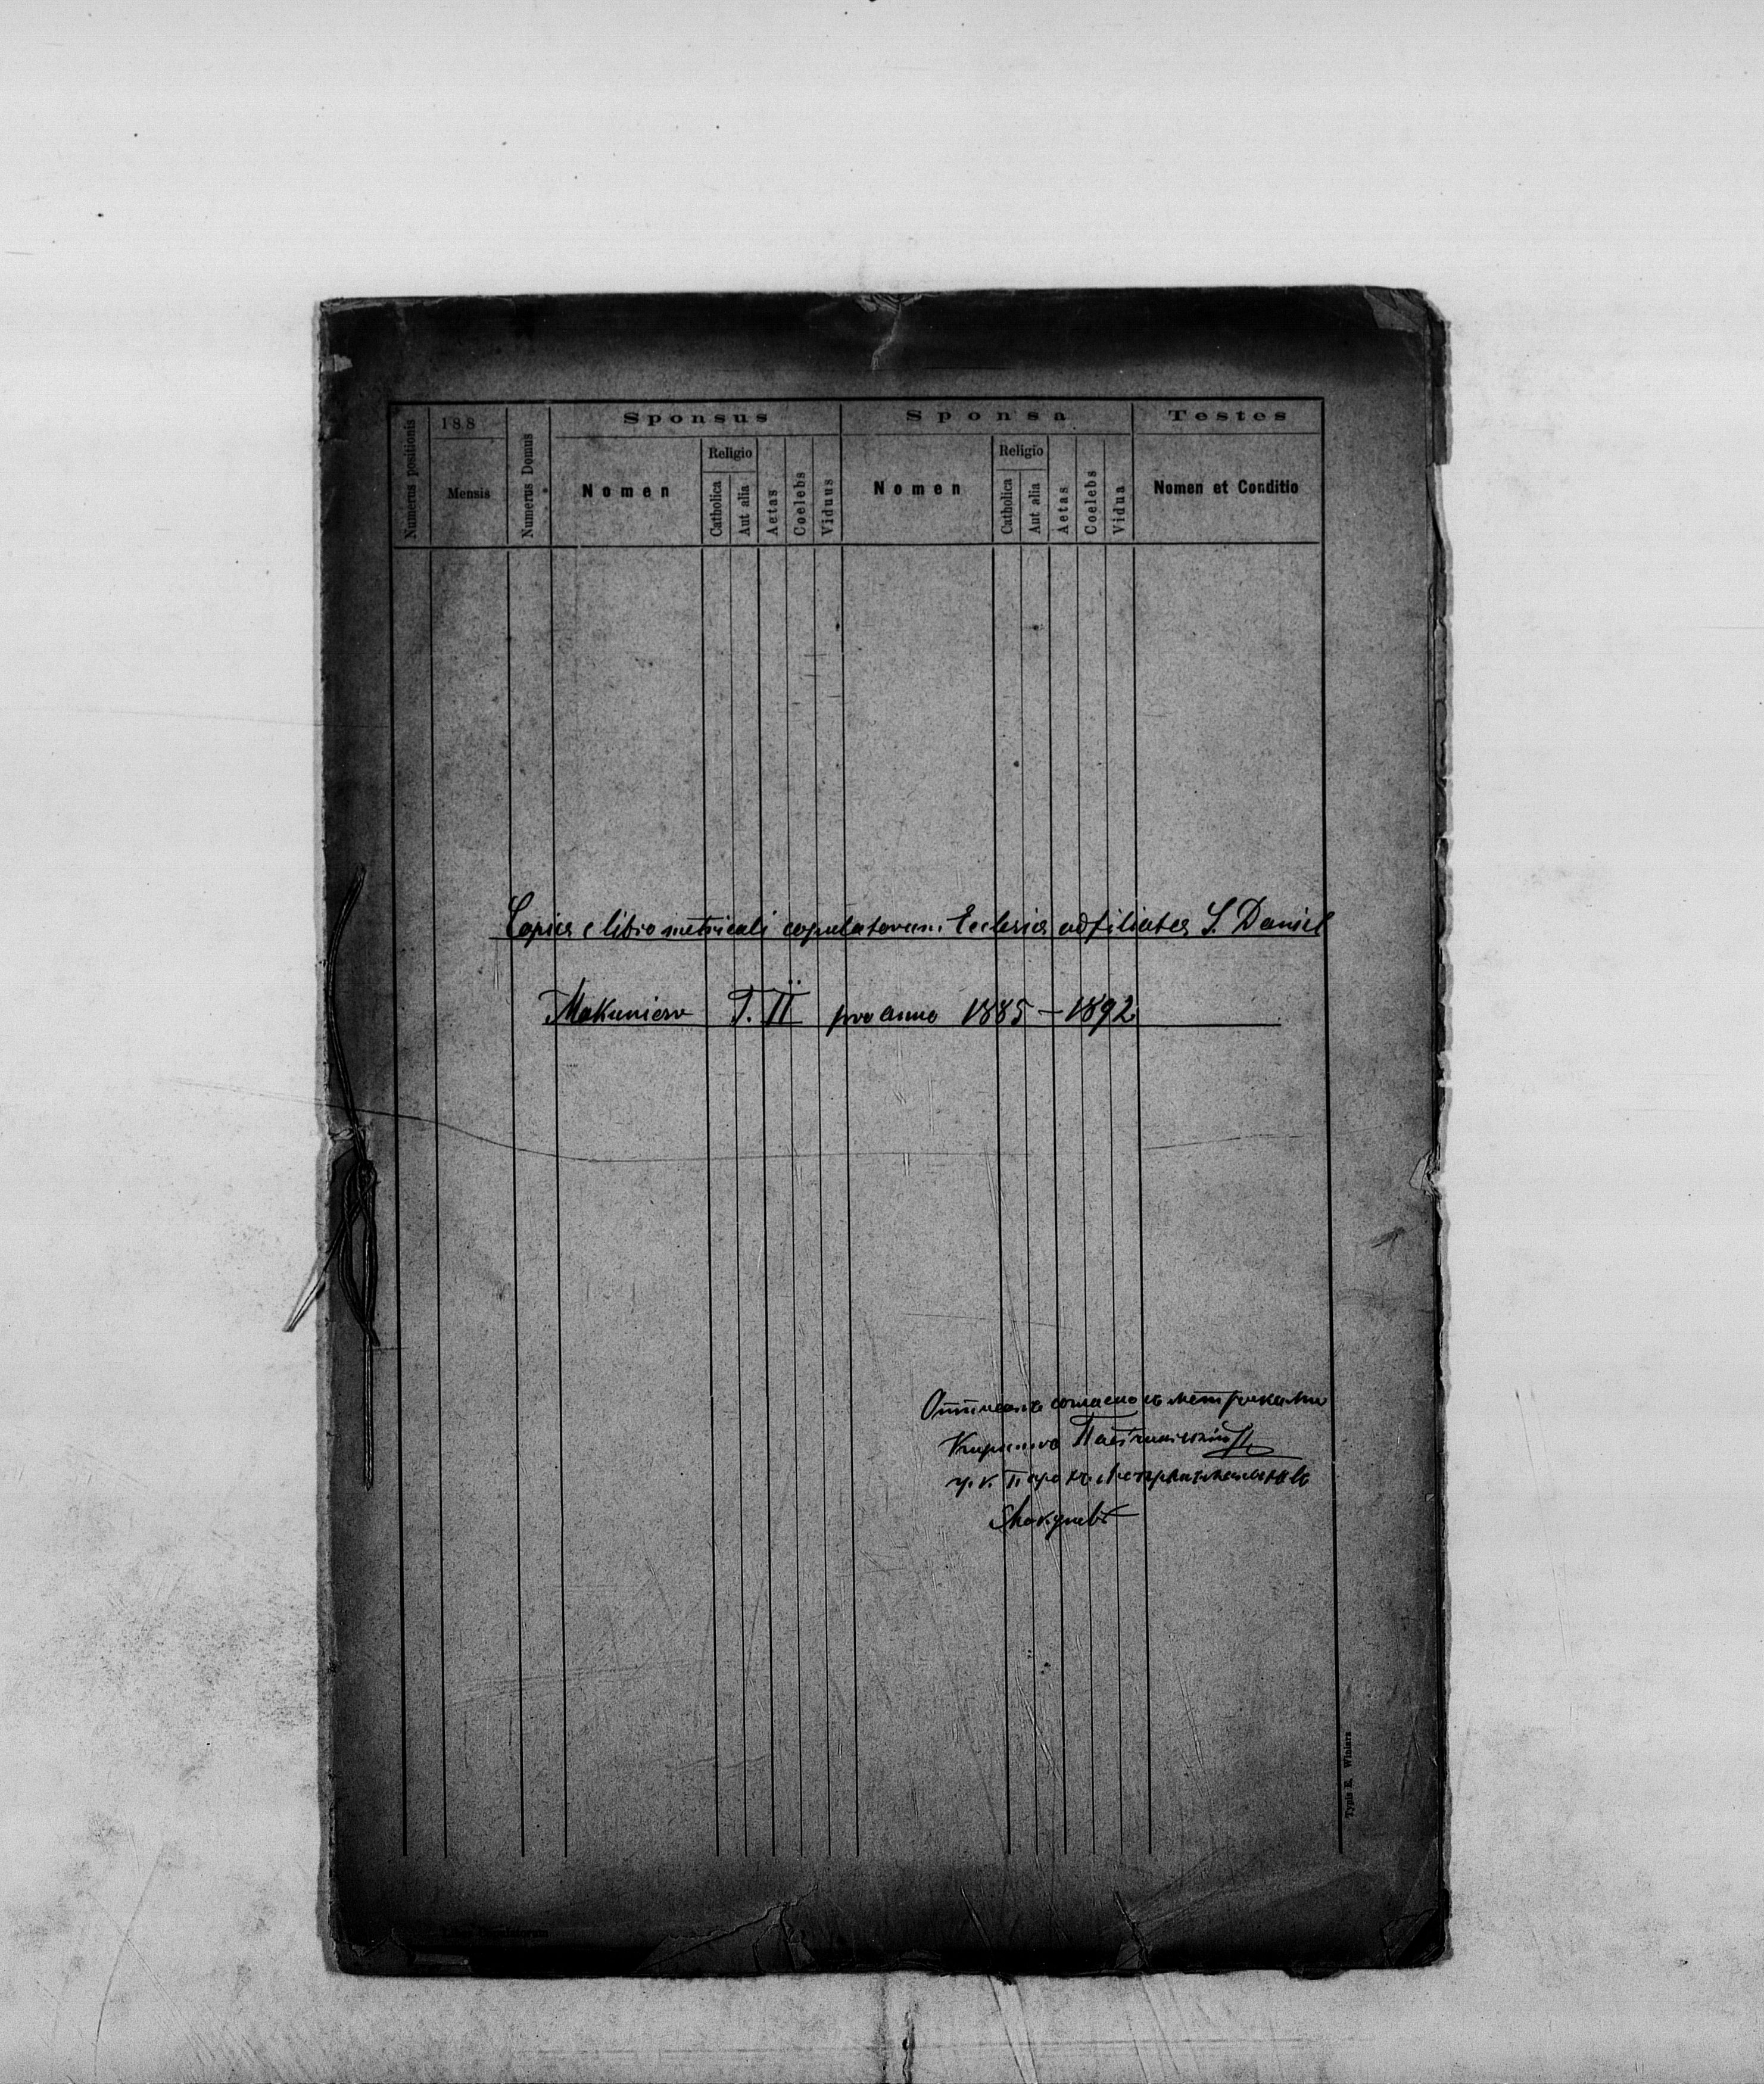 Sponsus Sponsa Testes
Numerus positionis 188 Mensis Numerus Domus Nomen Religio Catholica Aut alia Aetas Coelebs Viduus Nomen Religio Catholica Aut alia Aetas Coelebs Vidua Nomen et Conditio
Copia e libro metricali copulatorum Ecclesia adfiliata S. Daniel
Makuniew T. II pro anno 1885 – 1892
согласно съ
г. к. парохъ
Typis E. Winiarz